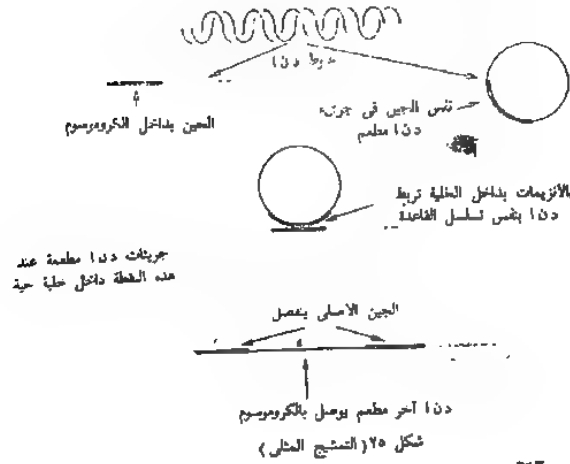 خيوط دنا
نفس الجين فى جزىء
دنا مطعم
الجين بداخل الكروموسوم
الأنزيمات بداخل الخلية تربط
دنا بنفس تسلسل القاعدة
جزيئات دنا مطعمة عند
هذه النقطة داخل خلية حية
الجين الاصلى ينفصل
دنا آخر مطعم يوصل بالكروموسوم
شكل ٢٥ (التمشيج المثلى)